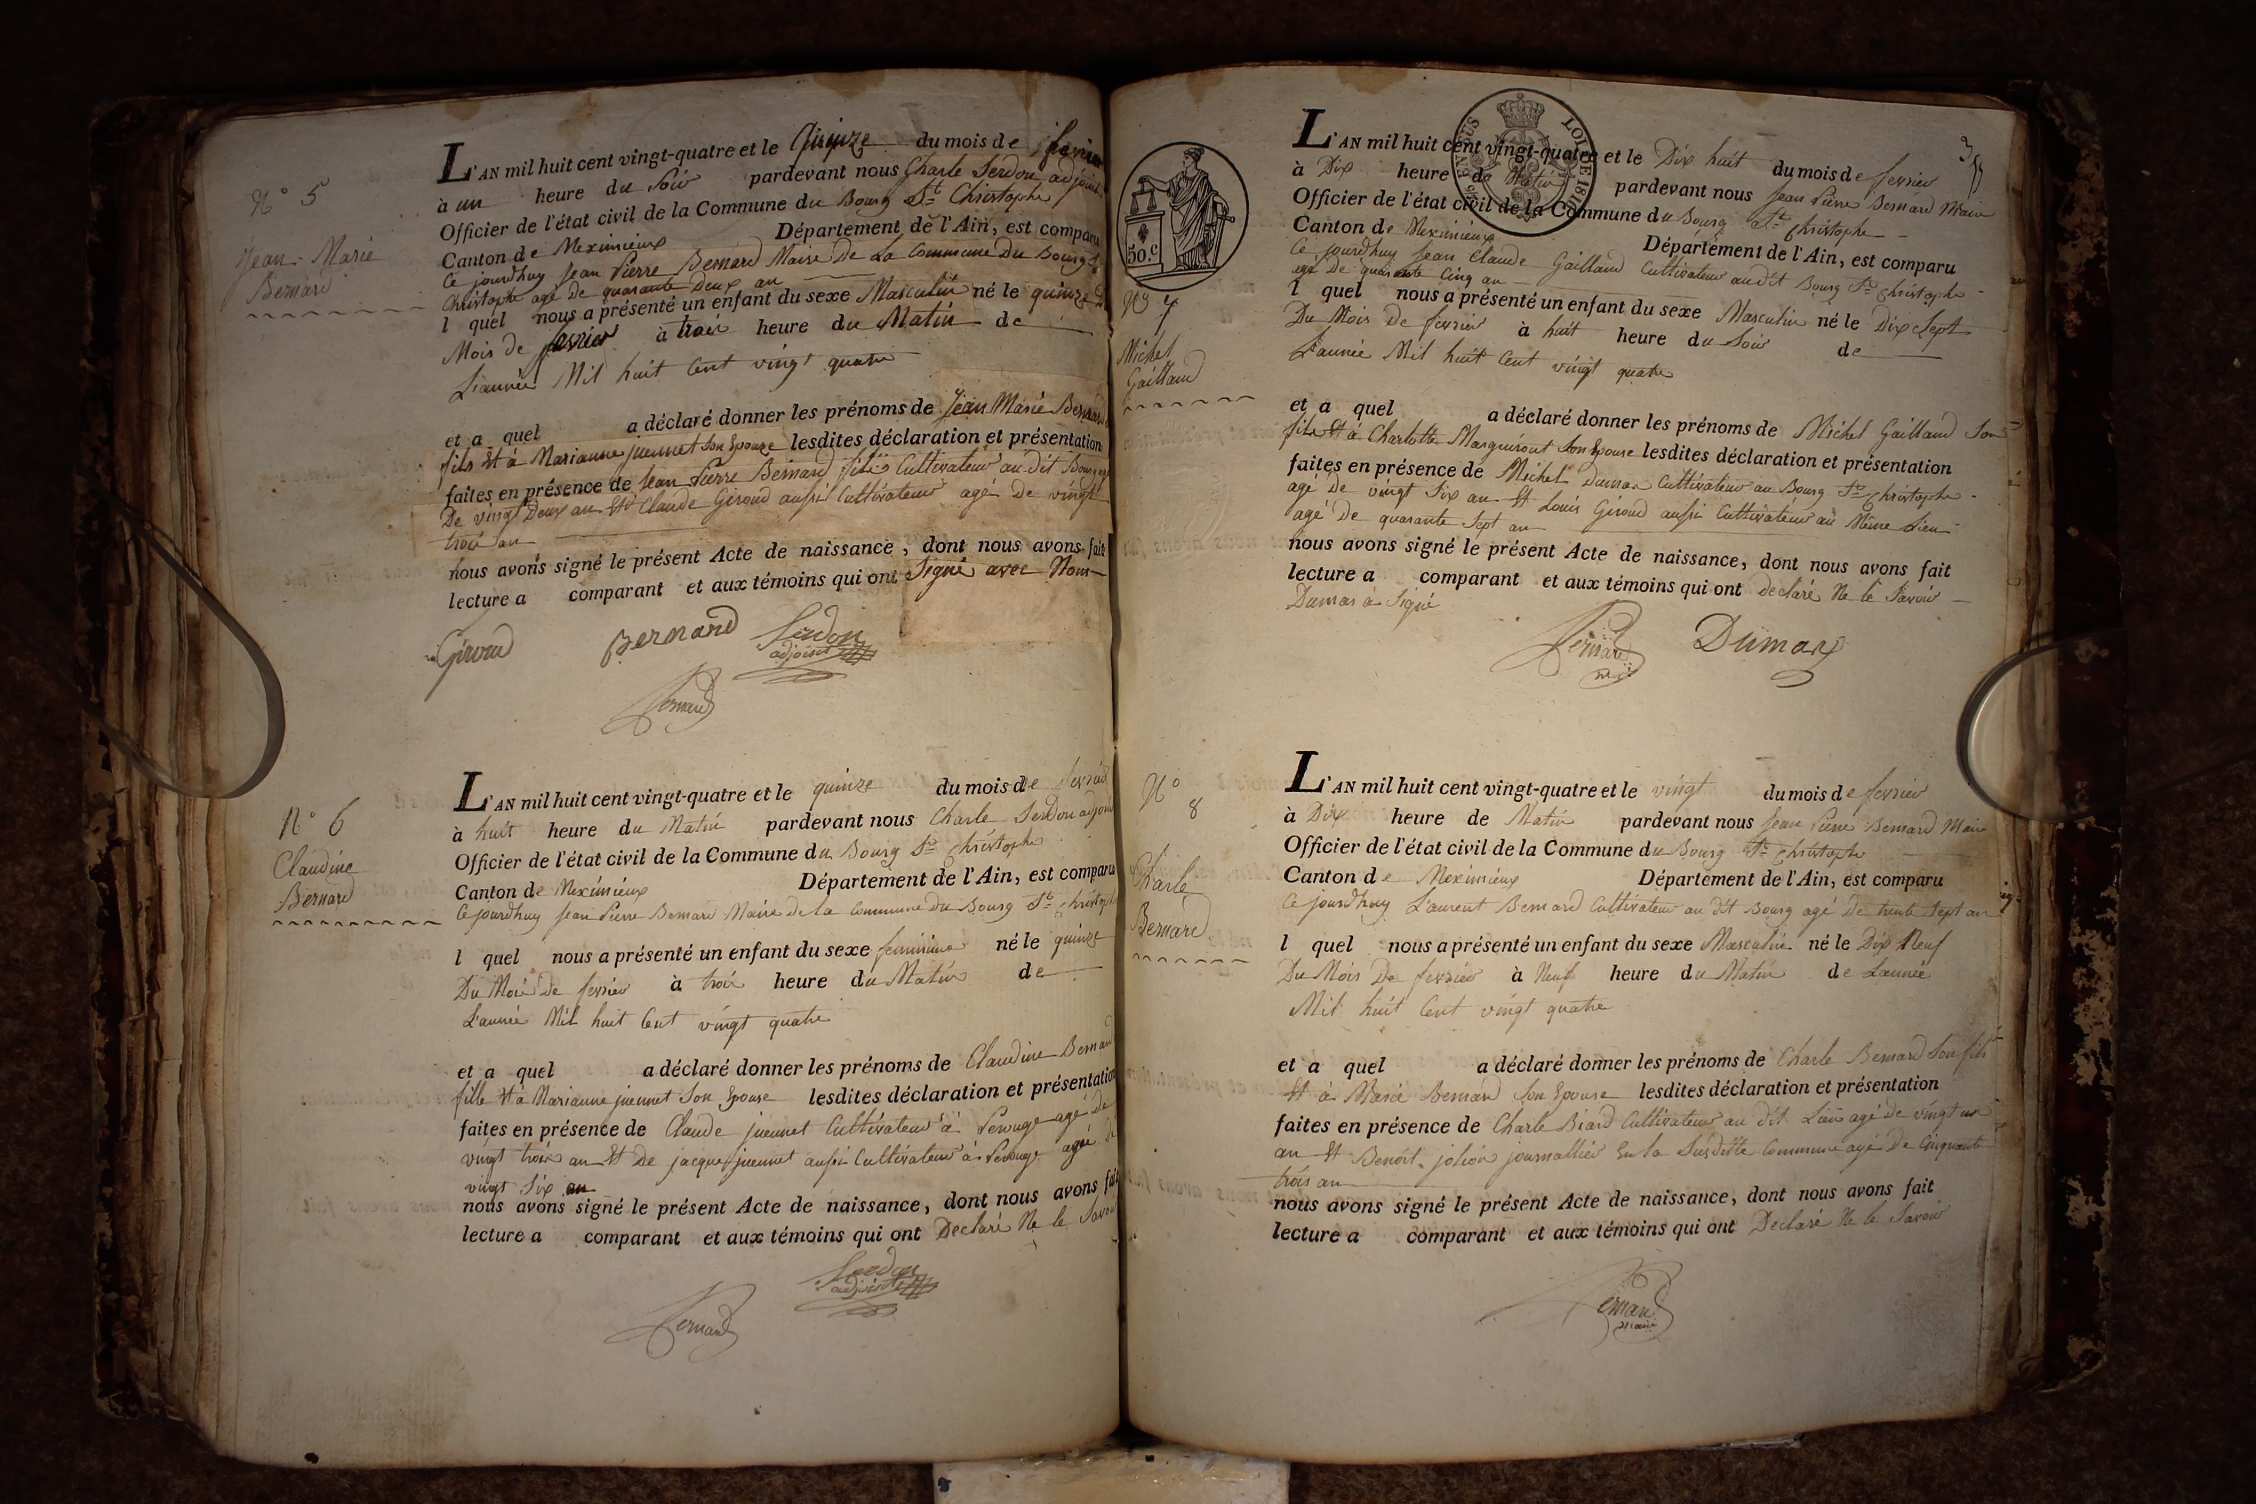 N° 5
Jean-Marie
Bernard
L'AN mil huit cent vingt-quatre et le Quinze du mois de fevrier
à un heure du Soir pardevant nous Charle Serdon adjoint
Officier de l'état civil de la Commune du Bourg St Christophe
Canton de Meximieux Département de l'Ain, est comparu
Ce jourdhuy Jean Pierre Bernard Maire De La Commune Du Bourg St
Christophe agé de quarante Deux an
l quel nous a présenté un enfant du sexe Masculin né le quinze Du
Mois de fevrier à trois heure du Matin de
L'année Mil huit Cent vingt quatre
et a quel a déclaré donner les prénoms de Jean Marie Bernard
fils Et à Marianne juennet Son Epouse lesdites déclaration et présentation
faites en présence de Jean Pierre Bernard fils Cultivateur au dit Bourg agé
De vingt Deux an Et Claude Giroud aussi Cultivateur agé De vingt
trois an
nous avons signé le présent Acte de naissance, dont nous avons fait
lecture a comparant et aux témoins qui ont Signé avec Nous
Giroud Bernard Serdon
adjoint
Bernard
N° 6
Claudine
Bernard
L'AN mil huit cent vingt-quatre et le quinze du mois de fevrier
à huit heure du Matin pardevant nous Charle Serdon adjoint
Officier de l'état civil de la Commune du Bourg St Christophe
Canton de Meximieux Département de l'Ain, est comparu
Ce jourdhuy Jean Pierre Bernard Maire de la Commune Du Bourg St Christophe
l quel nous a présenté un enfant du sexe feminine né le quinze
Du Mois De fevrier à trois heure du Matin de
L'année Mil huit Cent vingt quatre
et a quel a déclaré donner les prénoms de Claudine Bernard
fille Et à Marianne juennet Son Epouse lesdites déclaration et présentation
faites en présence de Claude juennet Cultivateur à Perouge agé de
vingt trois an Et De jacque juennet aussi Cultivateur à Perouge agé de
vingt Six an
nous avons signé le présent Acte de naissance, dont nous avons fait
lecture a comparant et aux témoins qui ont Declaré Ne le Savoir
Serdon
adjoint
Bernard
35
50.C
N° 7
Michel
Gaillaud
L'AN mil huit cent vingt-quatre et le Dix huit du mois de fevrier
à Dix heure de Matin pardevant nous Jean Pierre Bernard Maire
Officier de l'état civil de la Commune du Bourg St Christophe
Canton de Meximieux Département de l'Ain, est comparu
Ce jourdhuy Jean Claude Gaillaud Cultivateur au dit Bourg St Christophe
agé De quarante Cinq an
l quel nous a présenté un enfant du sexe Masculin né le Dix Sept
Du Mois De fevrier à huit heure du Soir de
L'année Mil huit Cent vingt quatre
et a quel a déclaré donner les prénoms de Michel Gaillaud Son
fils Et à Charlotte Son Epouse lesdites déclaration et présentation
faites en présence de Michel Dumas Cultivateur au Bourg St Christophe
agé De vingt Six an Et Louis Giroud aussi Cultivateur au Même Lieu
agé De quarante Sept an
nous avons signé le présent Acte de naissance, dont nous avons fait
lecture a comparant et aux témoins qui ont declaré Ne le Savoir
Dumas à Signé
Bernard Dumas
N° 8
Charle
Bernard
L'AN mil huit cent vingt-quatre et le vingt du mois de fevrier
à Dix heure de Matin pardevant nous Jean Pierre Bernard Maire
Officier de l'état civil de la Commune du Bourg St Christophe
Canton de Meximieux Département de l'Ain, est comparu
Ce jourdhuy Laurent Bernard Cultivateur au dit Bourg agé De trente Sept an
l quel nous a présenté un enfant du sexe Masculin né le Dix Neuf
Du Mois De fevrier à Neuf heure du Matin de L'année
Mil huit Cent vingt quatre
et a quel a déclaré donner les prénoms de Charle Bernard Son fils
Et à Marie Bernard Son Epouse lesdites déclaration et présentation
faites en présence de Charle Biard Cultivateur au dit Lieu agé De vingt un
an Et Benoit jolion journallier En la Susditte Commune agé De Cinquante
trois an
nous avons signé le présent Acte de naissance, dont nous avons fait
lecture a comparant et aux témoins qui ont Declaré Ne le Savoir
Bernard
maire